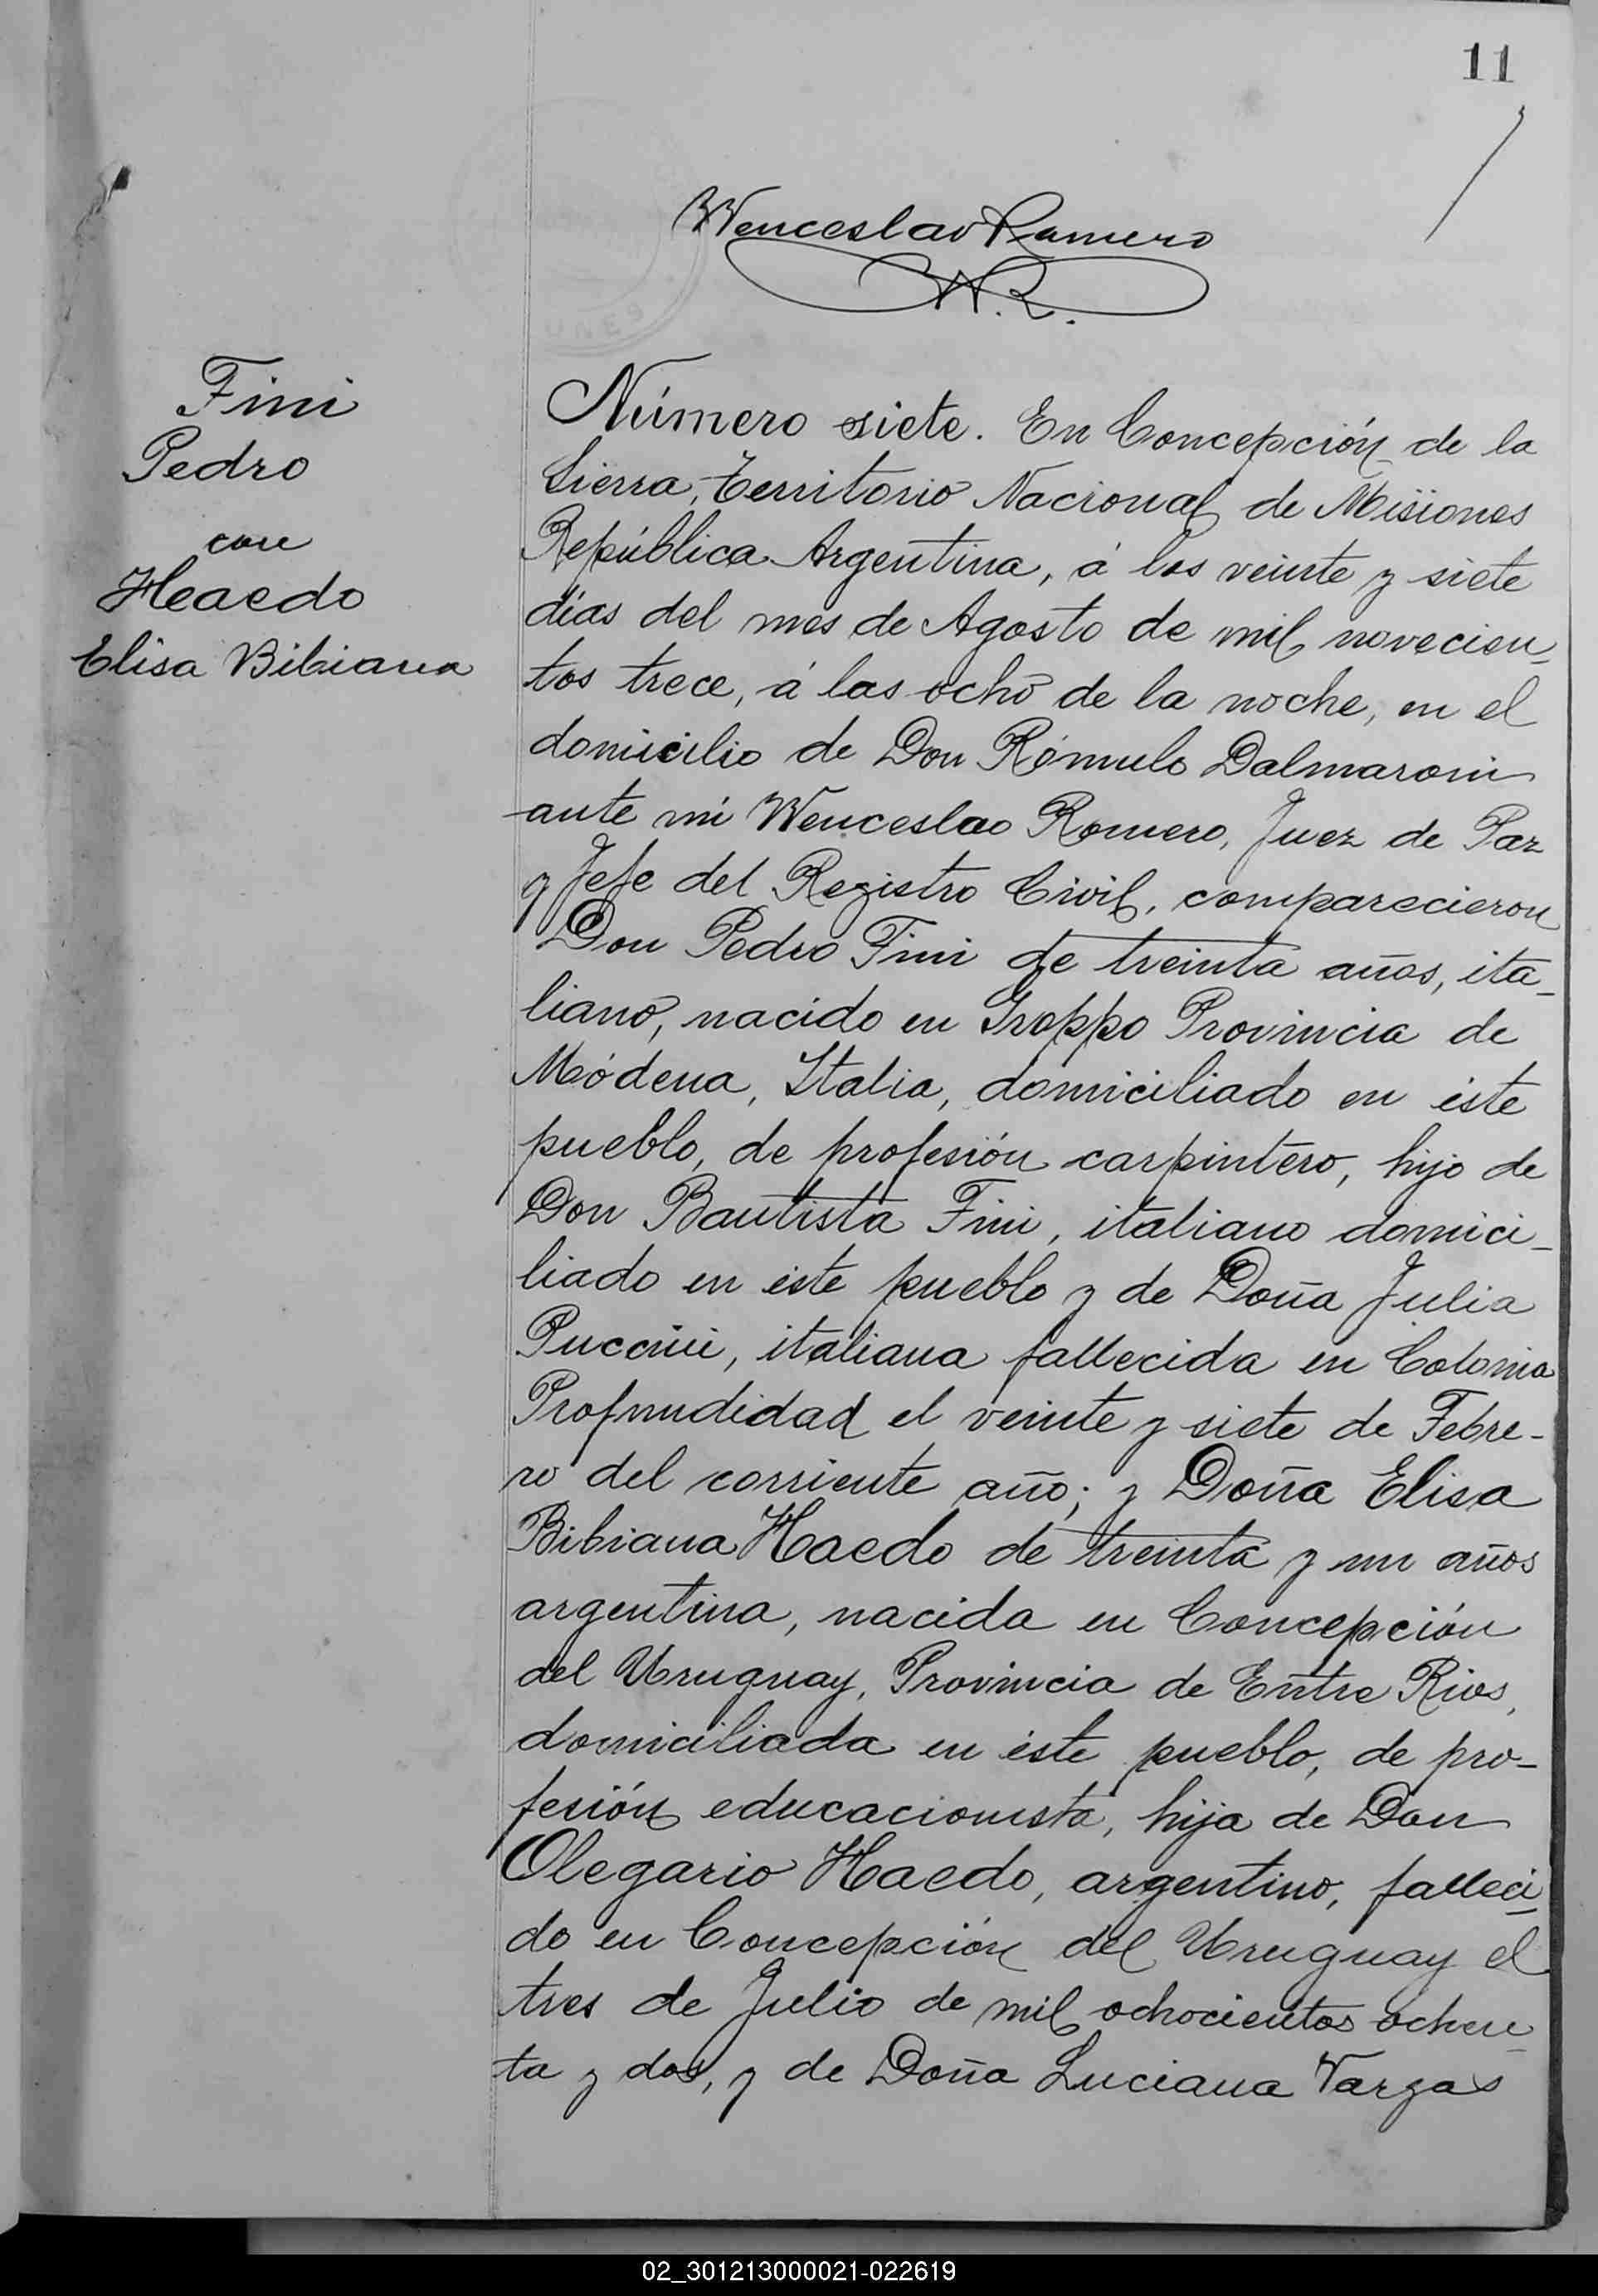 11
Wenceslao Romero
W.R.
UNES
Fini
Pedro
con
Heaedo
Elisa Bibiana
Número siete. En Concepción de la
Sierra, Territorio Nacional de Misiones
República Argentina, á los veinte y siete
días del mes de Agosto de mil novecien-
tos trece, á las ocho de la noche, en el
domicilio de Don Rómulo Dalmaroni
ante mi Wenceslao Romero, Juez de Paz
y Jefe del Registro Civil, comparecieron
Don Pedro Fini de treinta años, ita-
liano, nacido en Groppo Provincia de
Módena, Italia, domiciliado en éste
pueblo, de profesión carpintero, hijo de
Don Bautista Fini, italiano domici-
liado en éste pueblo y de Doña Julia
Puccini, italiana fallecida en Colonia
Profundidad el veinte y siete de Febre-
ro del corriente año; y Doña Elisa
Bibiana Haedo de treinta y un años
argentina, nacida en Concepción
del Uruguay, Provincia de Entre Rios,
domiciliada en éste pueblo, de pro-
fesión educacionista, hija de Don
Olegario Haedo, argentino, falleci-
do en Concepción del Uruguay el
tres de Julio de mil ochocientos ochen-
ta y dos, y de Doña Luciana Vargas
02_301213000021-022619